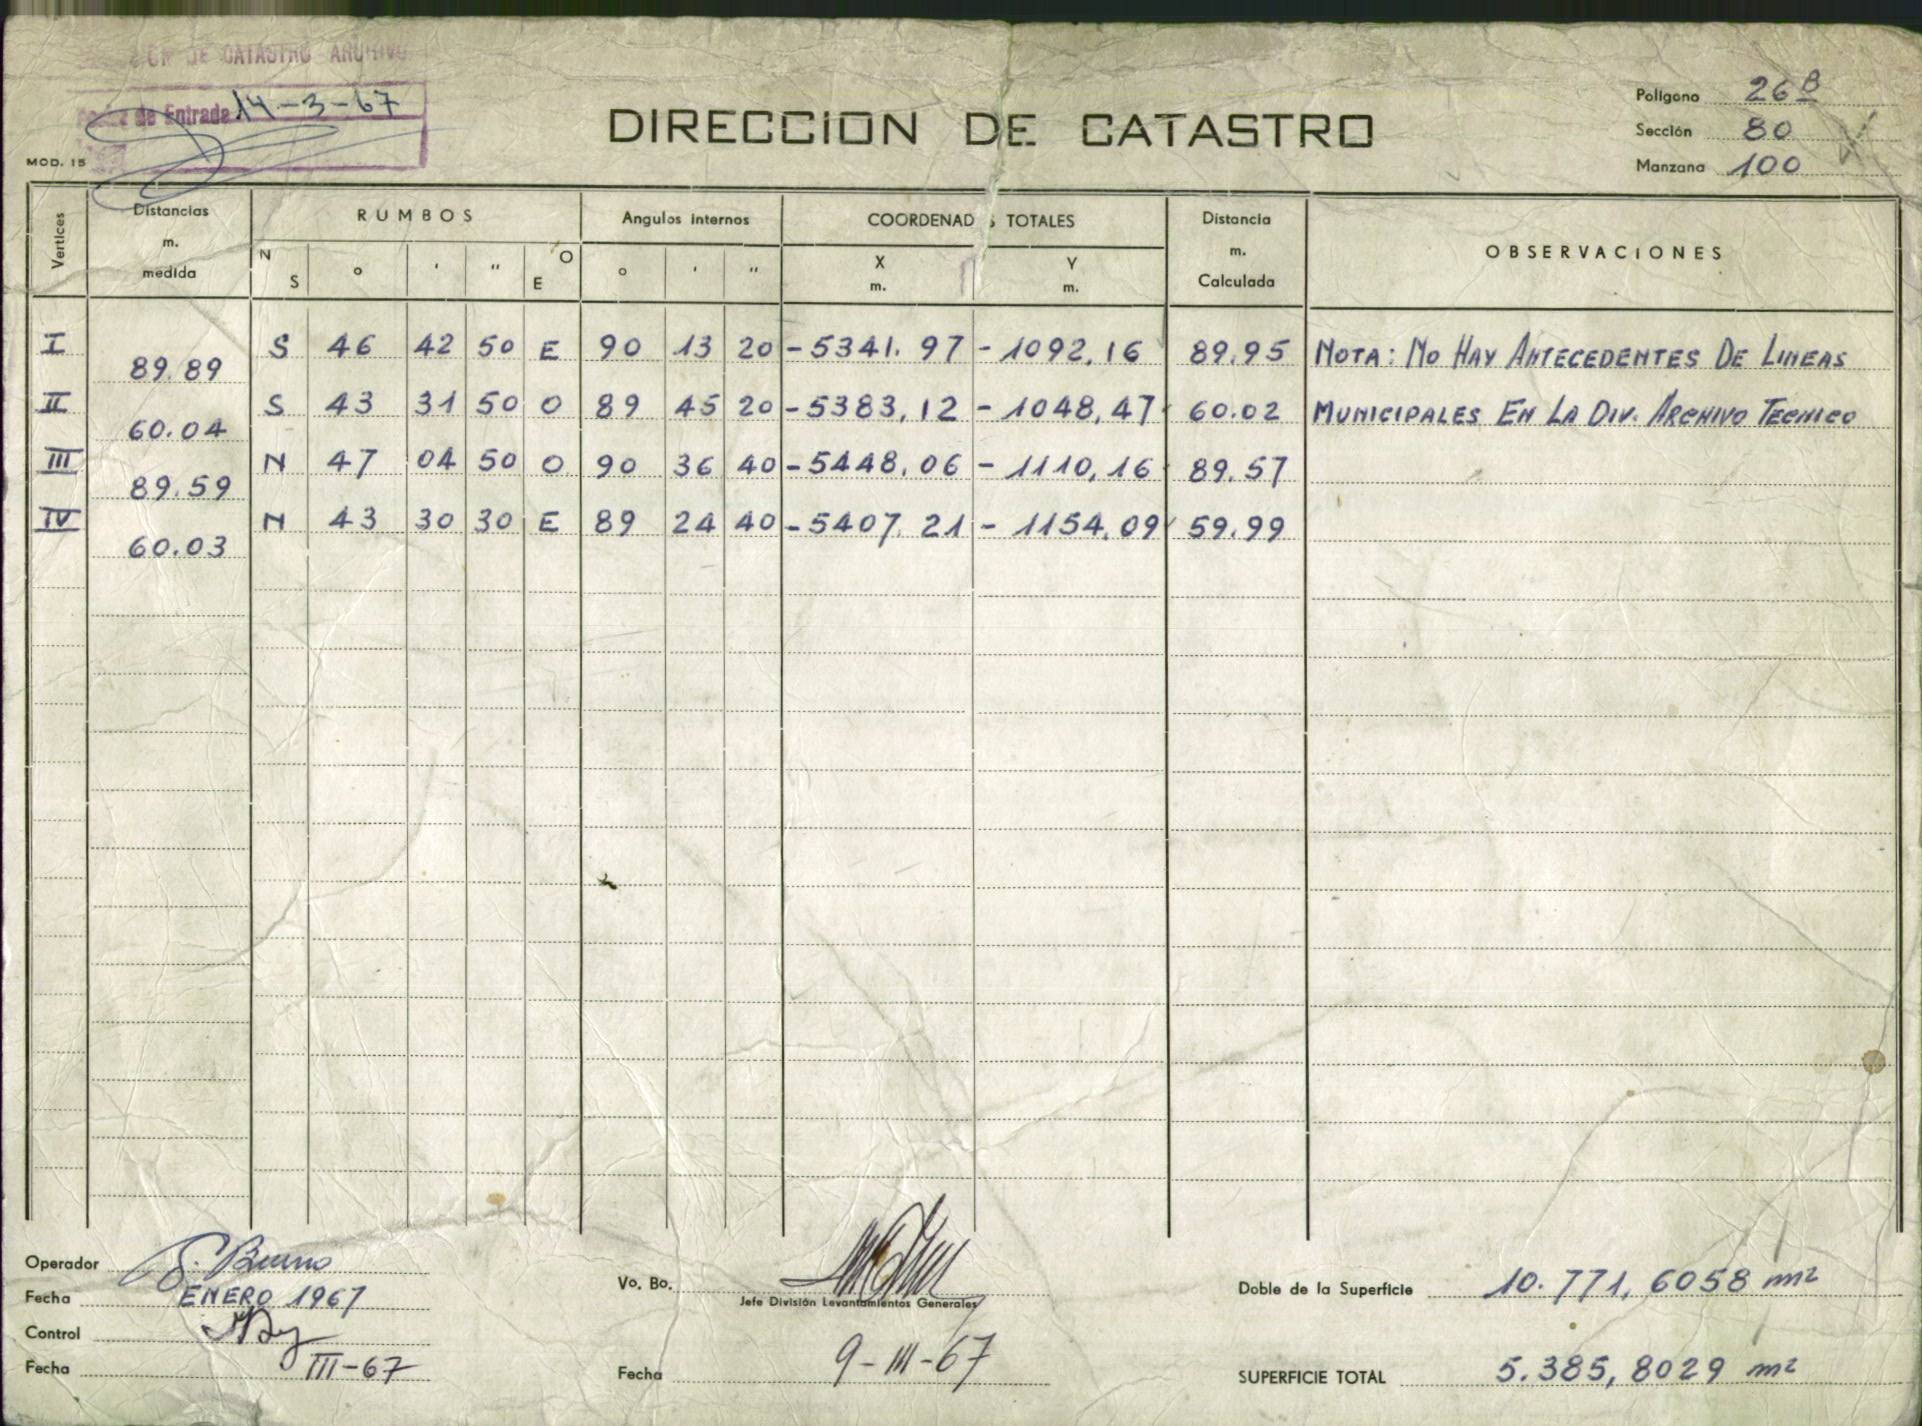 DE CATASTRO ARCHIVO
de Entrada 14-3-67
MOD. 15
DIRECCION DE CATASTRO
Polígono 26 B
Sección 80
Manzana 100
Vertices Distancias m. medida RUMBOS Angulos internos COORDENADAS TOTALES Distancia m. Calculada OBSERVACIONES
N S ° ' " O E ° ' " X m. Y m.
I 89.89 S 46 42 50 E 90 13 20 -5341.97 -1092,16 89.95 NOTA: NO HAY ANTECEDENTES DE LINEAS
II 60.04 S 43 31 50 O 89 45 20 -5383,12 -1048,47 60.02 MUNICIPALES EN LA DIV. ARCHIVO TECNICO
III 89.59 N 47 04 50 O 90 36 40 -5448,06 -1110,16 89.57
IV 60.03 N 43 30 30 E 89 24 40 -5407.21 -1154,09 59.99
Operador
Fecha ENERO 1967
Control
Fecha III-67
Vo. Bo.
Jefe División Levantamientos Generales
Fecha 9-III-67
Doble de la Superficie 10.771,6058 m2
SUPERFICIE TOTAL 5.385,8029 m2